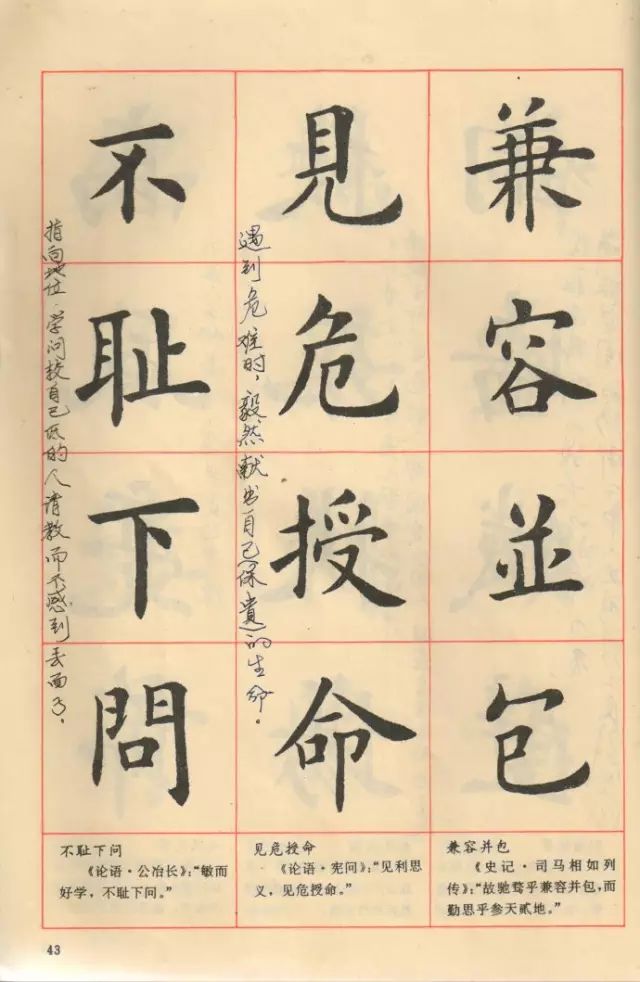 兼容並包
見危授命
遇到危难时，毅然献出自己的生命．
不耻下問
指向地位．学问较自己低的人请教而不感到丢面子．
兼容并包
《史记·司马相如列
传》：“故驰骛乎兼容并包，而
勤思乎参天贰地。”
见危授命
《论语·宪问》：“见利思
义，见危授命。”
不耻下问
《论语·公冶长》：“敏而
好学，不耻下问。”
43